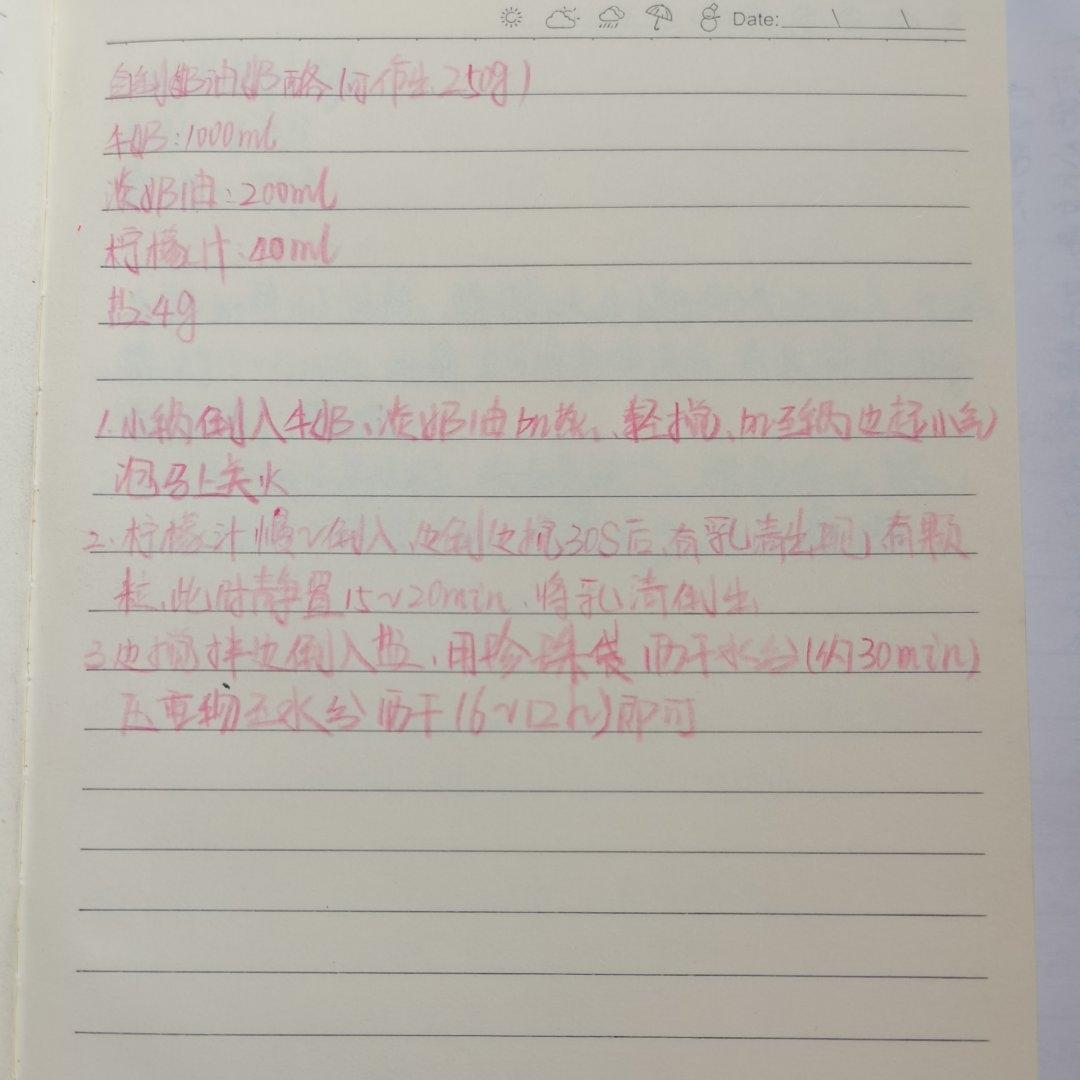 Date:
自制奶油奶酪(可作出250g)
牛奶:1000ml
淡奶油:200ml
柠檬汁:40ml
盐:4g
1.小锅倒入牛奶、淡奶油加热、轻搅、加至锅边起小气
泡马上关火
2.柠檬汁慢~倒入,边倒边搅30S后,有乳清出现,有颗
粒,此时静置15~20min,将乳清倒出
3.边搅拌边倒入盐,用珍珠袋 沥干水分(约30min)
压重物至水分沥干(6~12h)即可